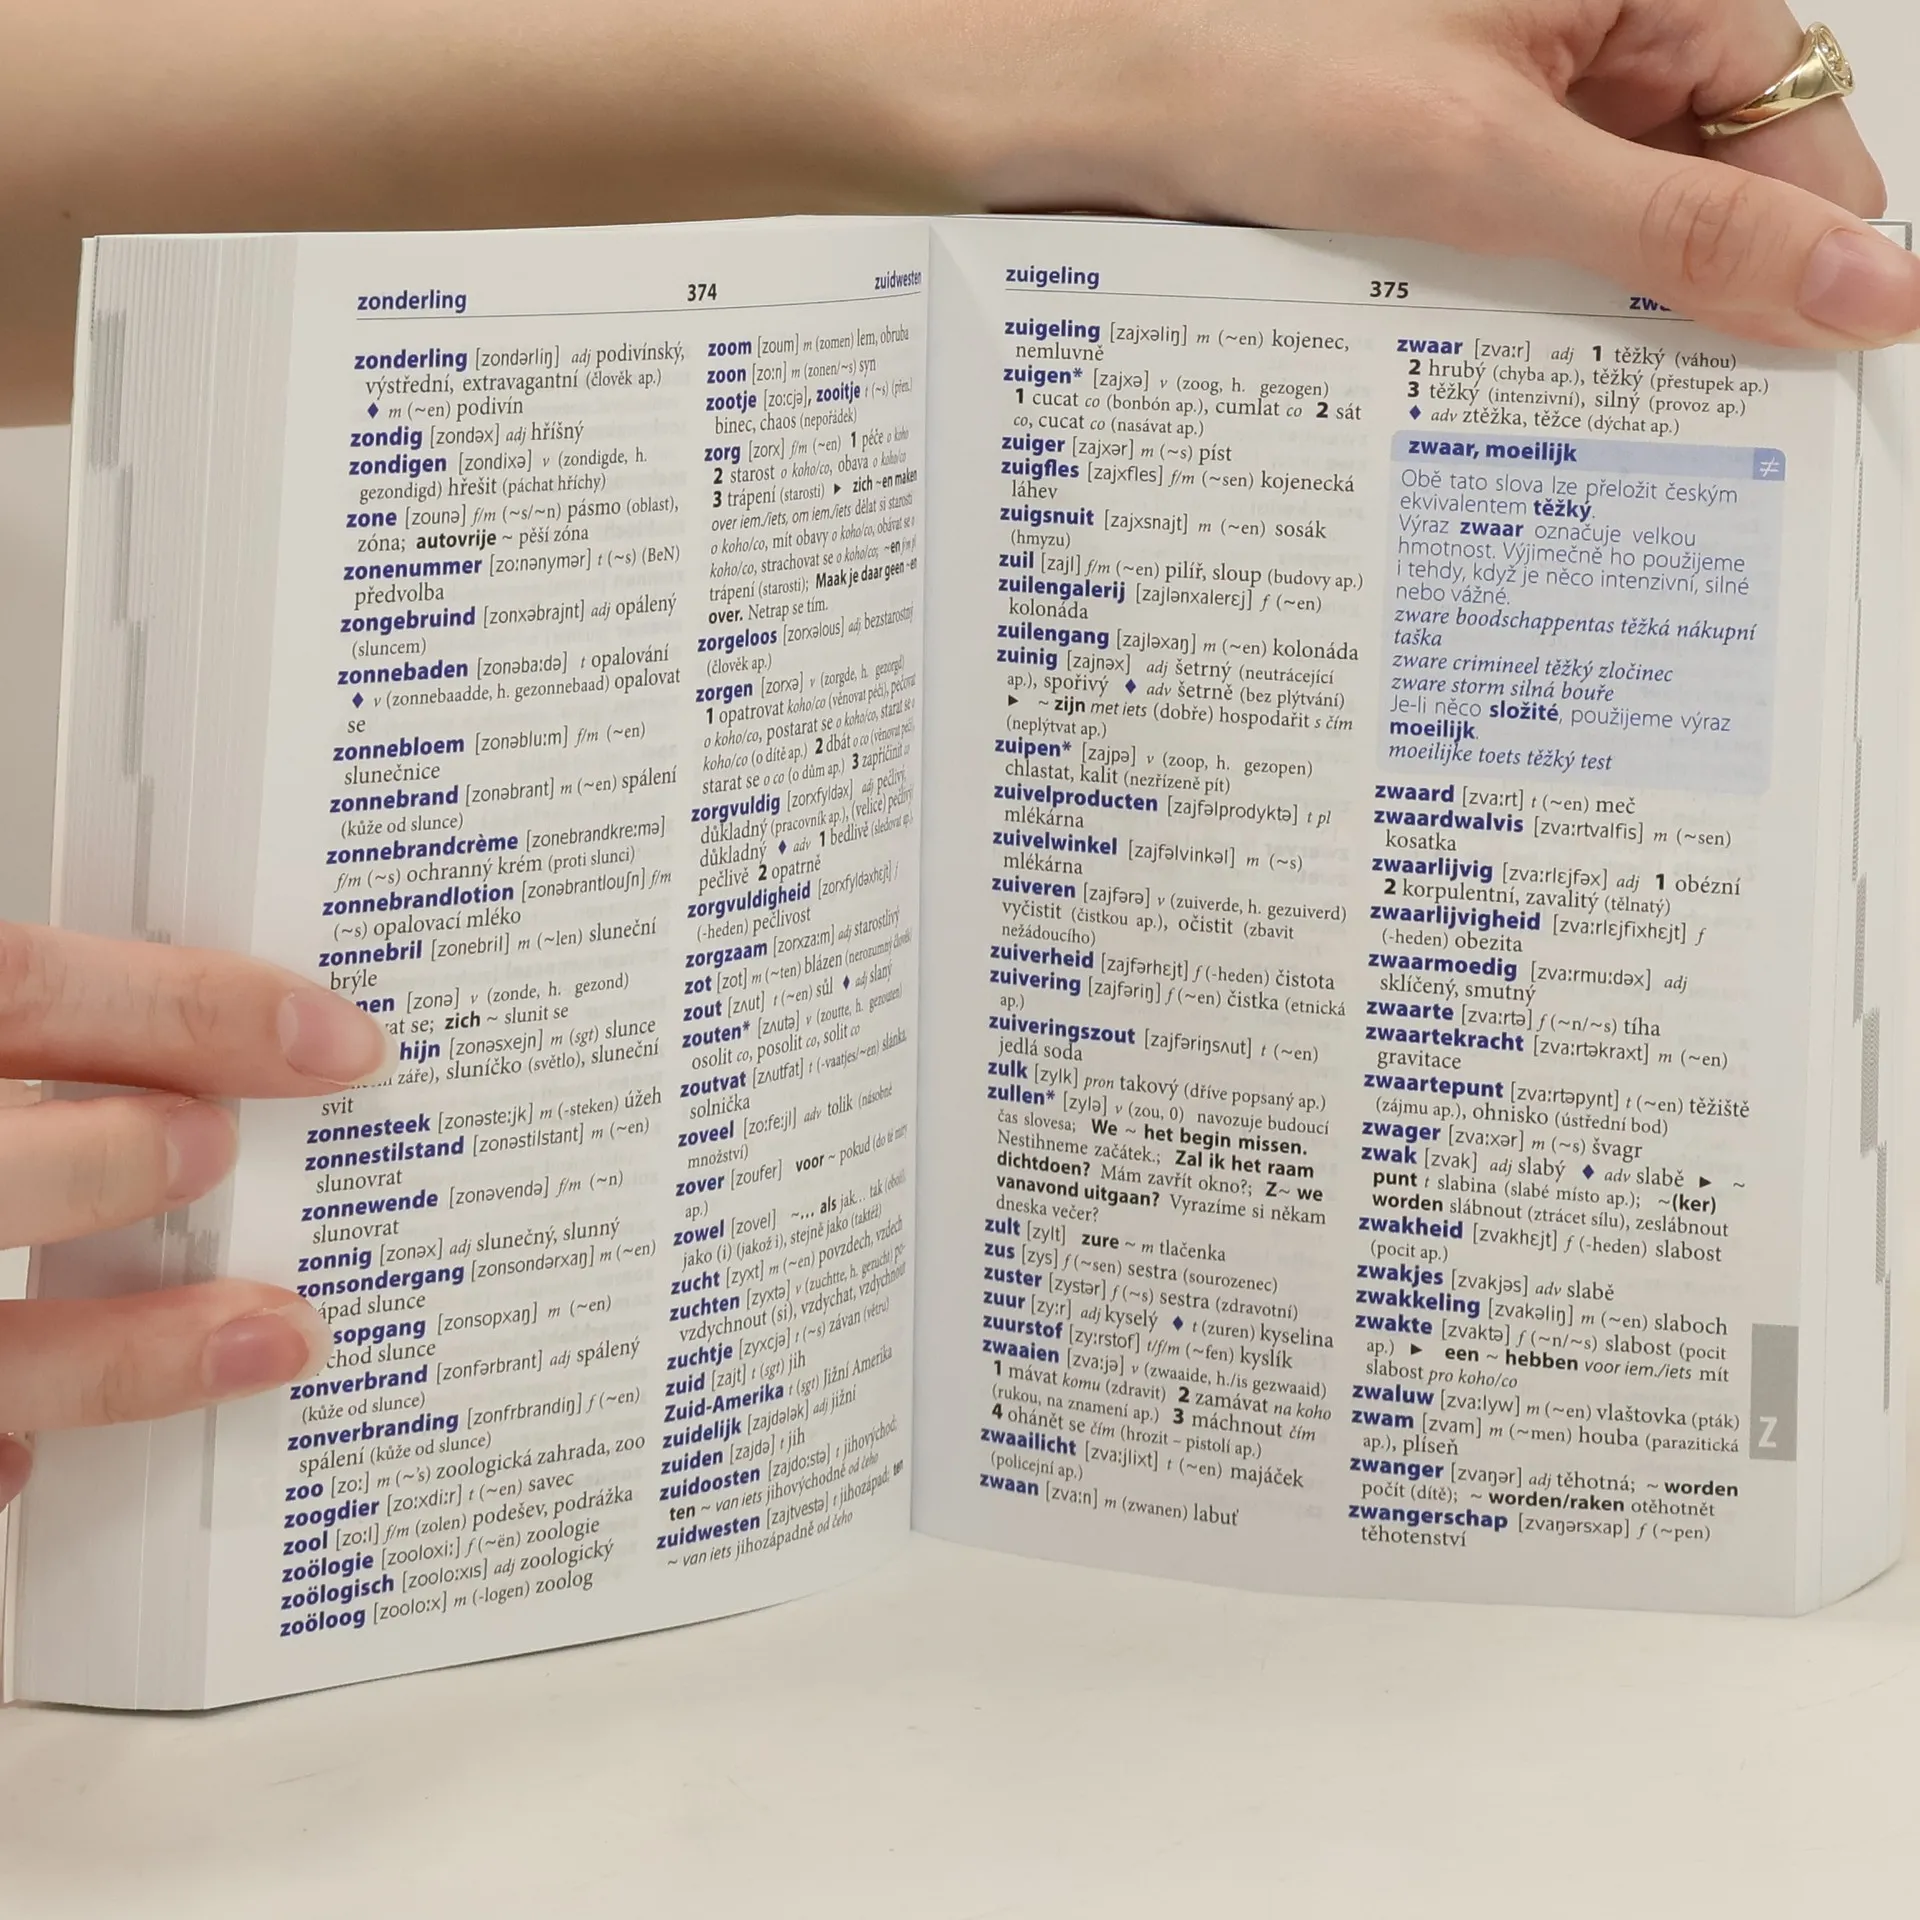 zonderling 374 zuidwesten
zonderling [zondərliŋ] adj podivínský,
výstřední, extravagantní (člověk ap.)
♦ m (~en) podivín
zondig [zondəx] adj hříšný
zondigen [zondixə] v (zondigde, h.
gezondigd) hřešit (páchat hříchy)
zone [zounə] f/m (~s/~n) pásmo (oblast),
zóna; autovrije ~ pěší zóna
zonenummer [zo:nənymər] t (~s) (BeN)
předvolba
zongebruind [zonxəbrajnt] adj opálený
(sluncem)
zonnebaden [zonəba:də] t opalování
♦ v (zonnebaadde, h. gezonnebaad) opalovat
se
zonnebloem [zonəblu:m] f/m (~en)
slunečnice
zonnebrand [zonəbrant] m (~en) spálení
(kůže od slunce)
zonnebrandcrème [zonebrandkre:mə]
f/m (~s) ochranný krém (proti slunci)
zonnebrandlotion [zonəbrantlouʃn] f/m
(~s) opalovací mléko
zonnebril [zonebril] m (~len) sluneční
brýle
nen [zonə] v (zonde, h. gezond)
at se; zich ~ slunit se
hijn [zonəsxejn] m (sgt) slunce
záře), sluníčko (světlo), sluneční
svit
zonnesteek [zonəste:jk] m (-steken) úžeh
zonnestilstand [zonəstilstant] m (~en)
slunovrat
zonnewende [zonəvendə] f/m (~n)
slunovrat
zonnig [zonəx] adj slunečný, slunný
zonsondergang [zonsondərxaŋ] m (~en)
ápad slunce
sopgang [zonsopxaŋ] m (~en)
chod slunce
zonverbrand [zonfərbrant] adj spálený
(kůže od slunce)
zonverbranding [zonfrbrandiŋ] f (~en)
spálení (kůže od slunce)
zoo [zo:] m (~'s) zoologická zahrada, zoo
zoogdier [zo:xdi:r] t (~en) savec
zool [zo:l] f/m (zolen) podešev, podrážka
zoölogie [zooloxi:] f (~ën) zoologie
zoölogisch [zoolo:xɪs] adj zoologický
zoöloog [zoolo:x] m (-logen) zoolog
zoom [zoum] m (zomen) lem, obruba
zoon [zo:n] m (zonen/~s) syn
zootje [zo:cjə], zooitje t (~s) (přen.)
binec, chaos (nepořádek)
zorg [zorx] f/m (~en) 1 péče o koho
2 starost o koho/co, obava o koho/co
3 trápení (starosti) ► zich ~en maken
over iem./iets, om iem./iets dělat si starosti
o koho/co, mít obavy o koho/co, obávat se o
koho/co, strachovat se o koho/co; ~en f/m pl
trápení (starosti); Maak je daar geen ~en
over. Netrap se tím.
zorgeloos [zorxəlous] adj bezstarostný
(člověk ap.)
zorgen [zorxə] v (zorgde, h. gezorgd)
1 opatrovat koho/co (věnovat péči), pečovat
o koho/co, postarat se o koho/co, starat se o
koho/co (o dítě ap.) 2 dbát o co (věnovat péči),
starat se o co (o dům ap.) 3 zapříčinit co
zorgvuldig [zorxfyldəx] adj pečlivý,
důkladný (pracovník ap.), (velice) pečlivý
důkladný ♦ adv 1 bedlivě (sledovat ap.),
pečlivě 2 opatrně
zorgvuldigheid [zorxfyldəxhɛjt] f
(-heden) pečlivost
zorgzaam [zorxza:m] adj starostlivý
zot [zot] m (~ten) blázen (nerozumný člověk)
zout [zʌut] t (~en) sůl ♦ adj slaný
zouten* [zʌutə] v (zoutte, h. gezouten)
osolit co, posolit co, solit co
zoutvat [zʌutfat] t (-vaatjes/~en) slánka,
solnička
zoveel [zo:fe:jl] adv tolik (násobné
množství)
zover [zoufer] voor ~ pokud (do té míry
ap.)
zowel [zovel] ~... als jak... tak (obojí),
jako (i) (jakož i), stejně jako (taktéž)
zucht [zyxt] m (~en) povzdech, vzdech
zuchten [zyxtə] v (zuchtte, h. gezucht) po-
vzdechnout (si), vzdychat, vzdychnout
zuchtje [zyxcjə] t (~s) závan (větru)
zuid [zajt] t (sgt) jih
Zuid-Amerika t (sgt) Jižní Amerika
zuidelijk [zajdələk] adj jižní
zuiden [zajdə] t jih
zuidoosten [zajdo:stə] t jihovýchod;
ten ~ van iets jihovýchodně od čeho
zuidwesten [zajtvestə] t jihozápad; ten
~ van iets jihozápadně od čeho
zuigeling 375
zuigeling [zajxəliŋ] m (~en) kojenec,
nemluvně
zuigen* [zajxə] v (zoog, h. gezogen)
1 cucat co (bonbón ap.), cumlat co 2 sát
co, cucat co (nasávat ap.)
zuiger [zajxər] m (~s) píst
zuigfles [zajxfles] f/m (~sen) kojenecká
láhev
zuigsnuit [zajxsnajt] m (~en) sosák
(hmyzu)
zuil [zajl] f/m (~en) pilíř, sloup (budovy ap.)
zuilengalerij [zajlənxalerɛj] f (~en)
kolonáda
zuilengang [zajləxaŋ] m (~en) kolonáda
zuinig [zajnəx] adj šetrný (neutrácející
ap.), spořivý ♦ adv šetrně (bez plýtvání)
► ~ zijn met iets (dobře) hospodařit s čím
(neplýtvat ap.)
zuipen* [zajpə] v (zoop, h. gezopen)
chlastat, kalit (nezřízeně pít)
zuivelproducten [zajfəlprodyktə] t pl
mlékárna
zuivelwinkel [zajfəlvinkəl] m (~s)
mlékárna
zuiveren [zajfərə] v (zuiverde, h. gezuiverd)
vyčistit (čistkou ap.), očistit (zbavit
nežádoucího)
zuiverheid [zajfərhɛjt] f (-heden) čistota
zuivering [zajfəriŋ] f (~en) čistka (etnická
ap.)
zuiveringszout [zajfəriŋsʌut] t (~en)
jedlá soda
zulk [zylk] pron takový (dříve popsaný ap.)
zullen* [zylə] v (zou, 0) navozuje budoucí
čas slovesa; We ~ het begin missen.
Nestihneme začátek.; Zal ik het raam
dichtdoen? Mám zavřít okno?; Z~ we
vanavond uitgaan? Vyrazíme si někam
dneska večer?
zult [zylt] zure ~ m tlačenka
zus [zys] f (~sen) sestra (sourozenec)
zuster [zystər] f (~s) sestra (zdravotní)
zuur [zy:r] adj kyselý ♦ t (zuren) kyselina
zuurstof [zy:rstof] t/f/m (~fen) kyslík
zwaaien [zva:jə] v (zwaaide, h./is gezwaaid)
1 mávat komu (zdravit) 2 zamávat na koho
(rukou, na znamení ap.) 3 máchnout čím
4 ohánět se čím (hrozit – pistolí ap.)
zwaailicht [zva:jlixt] t (~en) majáček
(policejní ap.)
zwaan [zva:n] m (zwanen) labuť
zwaar [zva:r] adj 1 těžký (váhou)
2 hrubý (chyba ap.), těžký (přestupek ap.)
3 těžký (intenzivní), silný (provoz ap.)
♦ adv ztěžka, těžce (dýchat ap.)
zwaar, moeilijk ≠
Obě tato slova lze přeložit českým
ekvivalentem těžký.
Výraz zwaar označuje velkou
hmotnost. Výjimečně ho použijeme
i tehdy, když je něco intenzivní, silné
nebo vážné.
zware boodschappentas těžká nákupní
taška
zware crimineel těžký zločinec
zware storm silná bouře
Je-li něco složité, použijeme výraz
moeilijk.
moeilijke toets těžký test
zwaard [zva:rt] t (~en) meč
zwaardwalvis [zva:rtvalfis] m (~sen)
kosatka
zwaarlijvig [zva:rlɛjfəx] adj 1 obézní
2 korpulentní, zavalitý (tělnatý)
zwaarlijvigheid [zva:rlɛjfixhɛjt] f
(-heden) obezita
zwaarmoedig [zva:rmu:dəx] adj
sklíčený, smutný
zwaarte [zva:rtə] f (~n/~s) tíha
zwaartekracht [zva:rtəkraxt] m (~en)
gravitace
zwaartepunt [zva:rtəpynt] t (~en) těžiště
(zájmu ap.), ohnisko (ústřední bod)
zwager [zva:xər] m (~s) švagr
zwak [zvak] adj slabý ♦ adv slabě ► ~
punt t slabina (slabé místo ap.); ~(ker)
worden slábnout (ztrácet sílu), zeslábnout
zwakheid [zvakhɛjt] f (-heden) slabost
(pocit ap.)
zwakjes [zvakjəs] adv slabě
zwakkeling [zvakəliŋ] m (~en) slaboch
zwakte [zvaktə] f (~n/~s) slabost (pocit
ap.) ► een ~ hebben voor iem./iets mít
slabost pro koho/co
zwaluw [zva:lyw] m (~en) vlaštovka (pták)
zwam [zvam] m (~men) houba (parazitická
ap.), plíseň
zwanger [zvaŋər] adj těhotná; ~ worden
počít (dítě); ~ worden/raken otěhotnět
zwangerschap [zvaŋərsxap] f (~pen)
těhotenství
Z